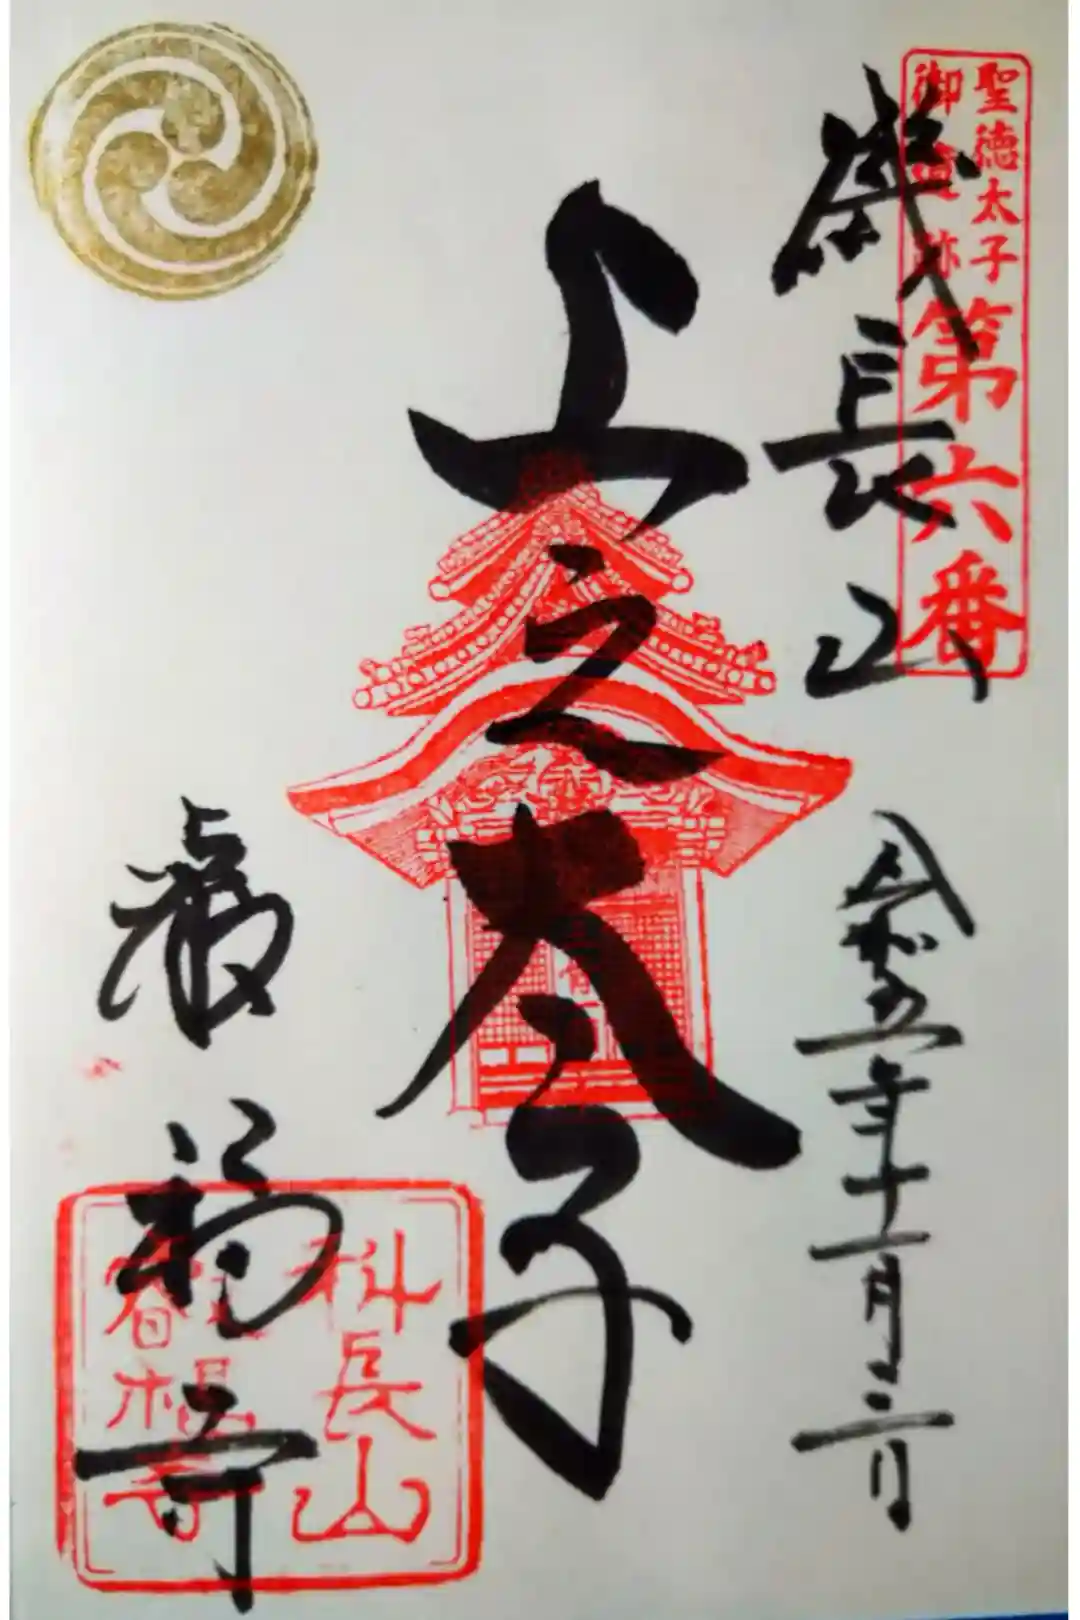 聖徳太子
御遺跡
第六番
磯長山
令和五年十一月二日
上之太子
叡福寺
科長山
叡福寺